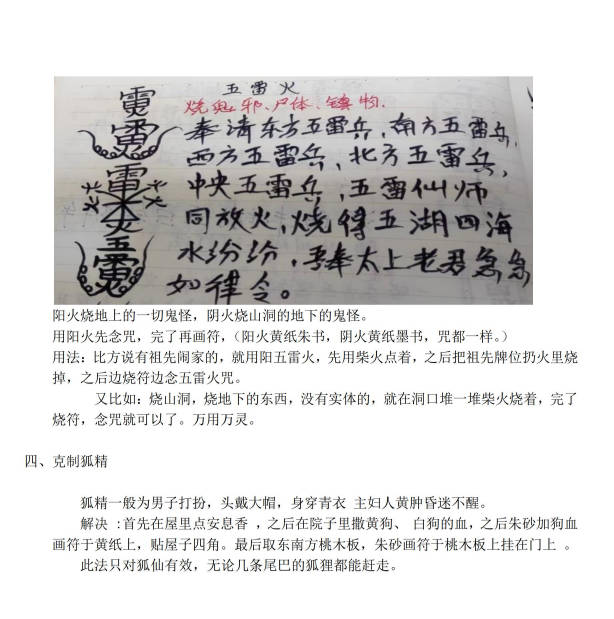 五雷火
烧鬼邪、尸体、镇物.
奉请东方五雷兵,南方五雷兵,
西方五雷兵,北方五雷兵,
中央五雷兵,五雷仙师
同放火,烧得五湖四海
水纷纷,吾奉太上老君急急
如律令。
阳火烧地上的一切鬼怪，阴火烧山洞的地下的鬼怪。
用阳火先念咒，完了再画符，（阳火黄纸朱书，阴火黄纸墨书，咒都一样。）
用法：比方说有祖先闹家的，就用阳五雷火，先用柴火点着，之后把祖先牌位扔火里烧
掉，之后边烧符边念五雷火咒。
又比如：烧山洞，烧地下的东西，没有实体的，就在洞口堆一堆柴火烧着，完了
烧符，念咒就可以了。万用万灵。
四、克制狐精
狐精一般为男子打扮，头戴大帽，身穿青衣 主妇人黄肿昏迷不醒。
解决 :首先在屋里点安息香 ，之后在院子里撒黄狗、 白狗的血，之后朱砂加狗血
画符于黄纸上，贴屋子四角。最后取东南方桃木板，朱砂画符于桃木板上挂在门上 。
此法只对狐仙有效，无论几条尾巴的狐狸都能赶走。